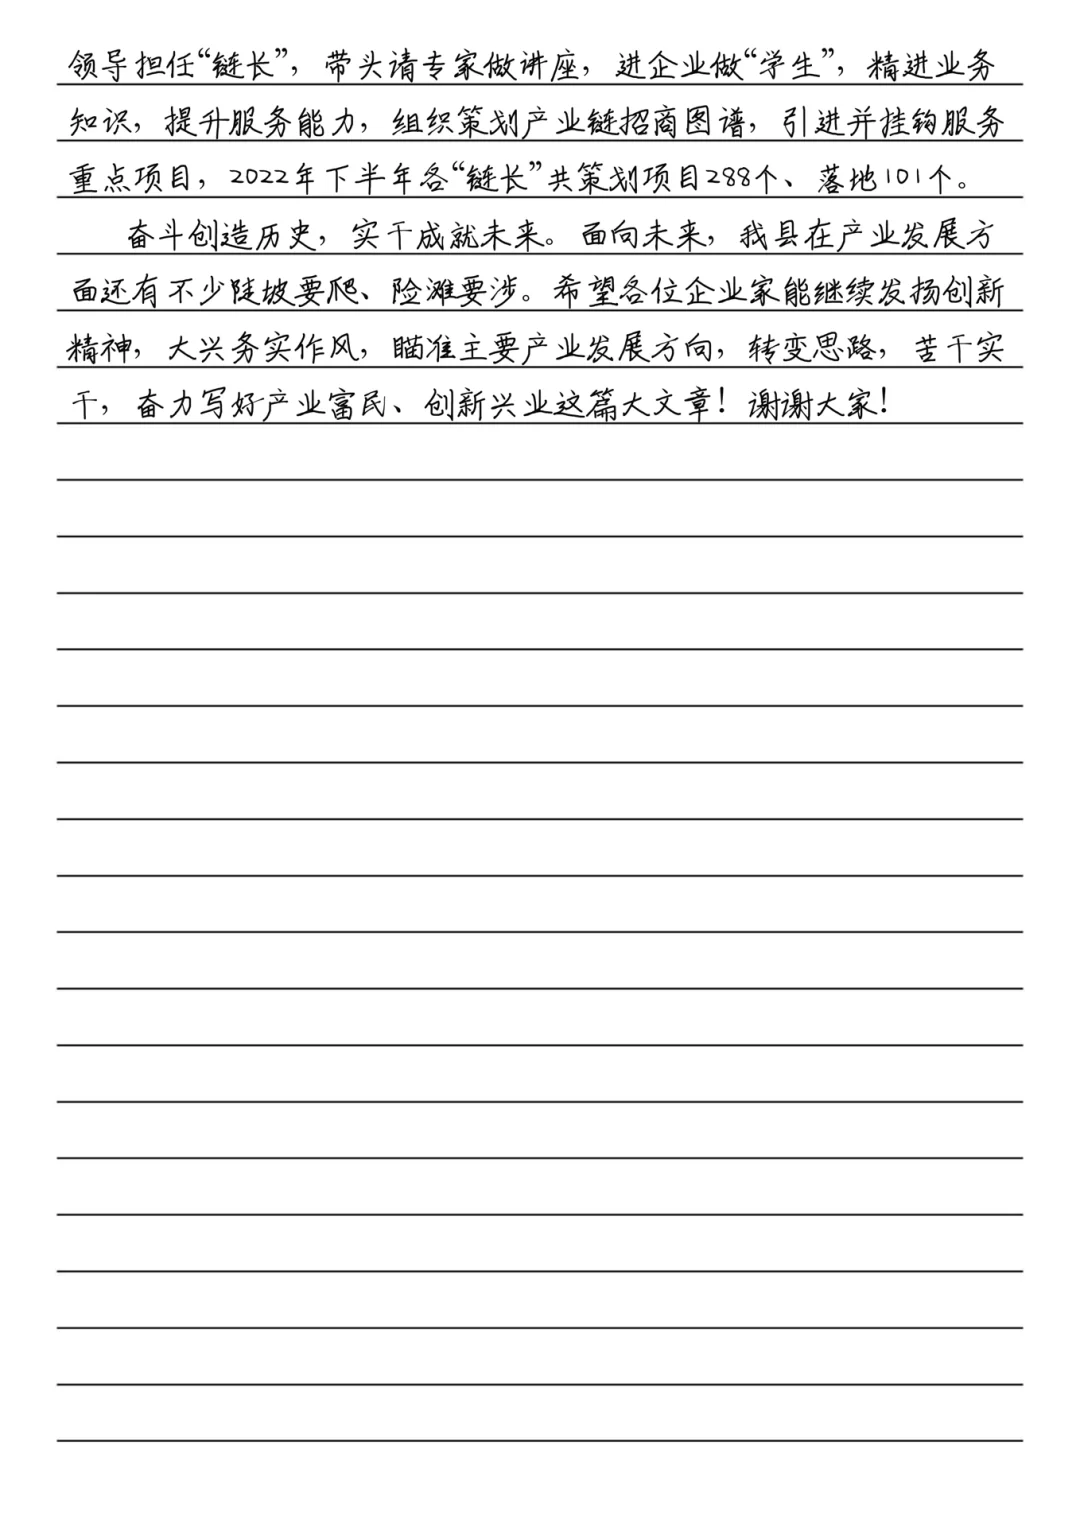 领导担任“链长”，带头请专家做讲座，进企业做“学生”，精进业务
知识，提升服务能力，组织策划产业链招商图谱，引进并挂钩服务
重点项目，2022年下半年各“链长”共策划项目288个、落地101个。
奋斗创造历史，实干成就未来。面向未来，我县在产业发展方
面还有不少陡坡要爬、险滩要涉。希望各位企业家能继续发扬创新
精神，大兴务实作风，瞄准主要产业发展方向，转变思路，苦干实
干，奋力写好产业富民、创新兴业这篇大文章！谢谢大家！